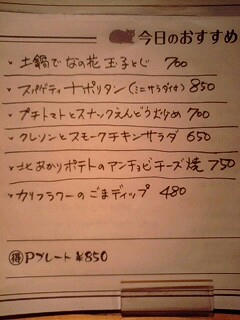 今日のおすすめ
・土鍋で なの花 玉子とじ 700
・スパゲティ ナポリタン (ミニサラダ付) 850
・プチトマトとスナックえんどう炒め 700
・クレソンとスモークチキンサラダ 650
・北あかりポテトのアンチョビチーズ焼 750
・カリフラワーのごまディップ 480
得 Pプレート ¥850